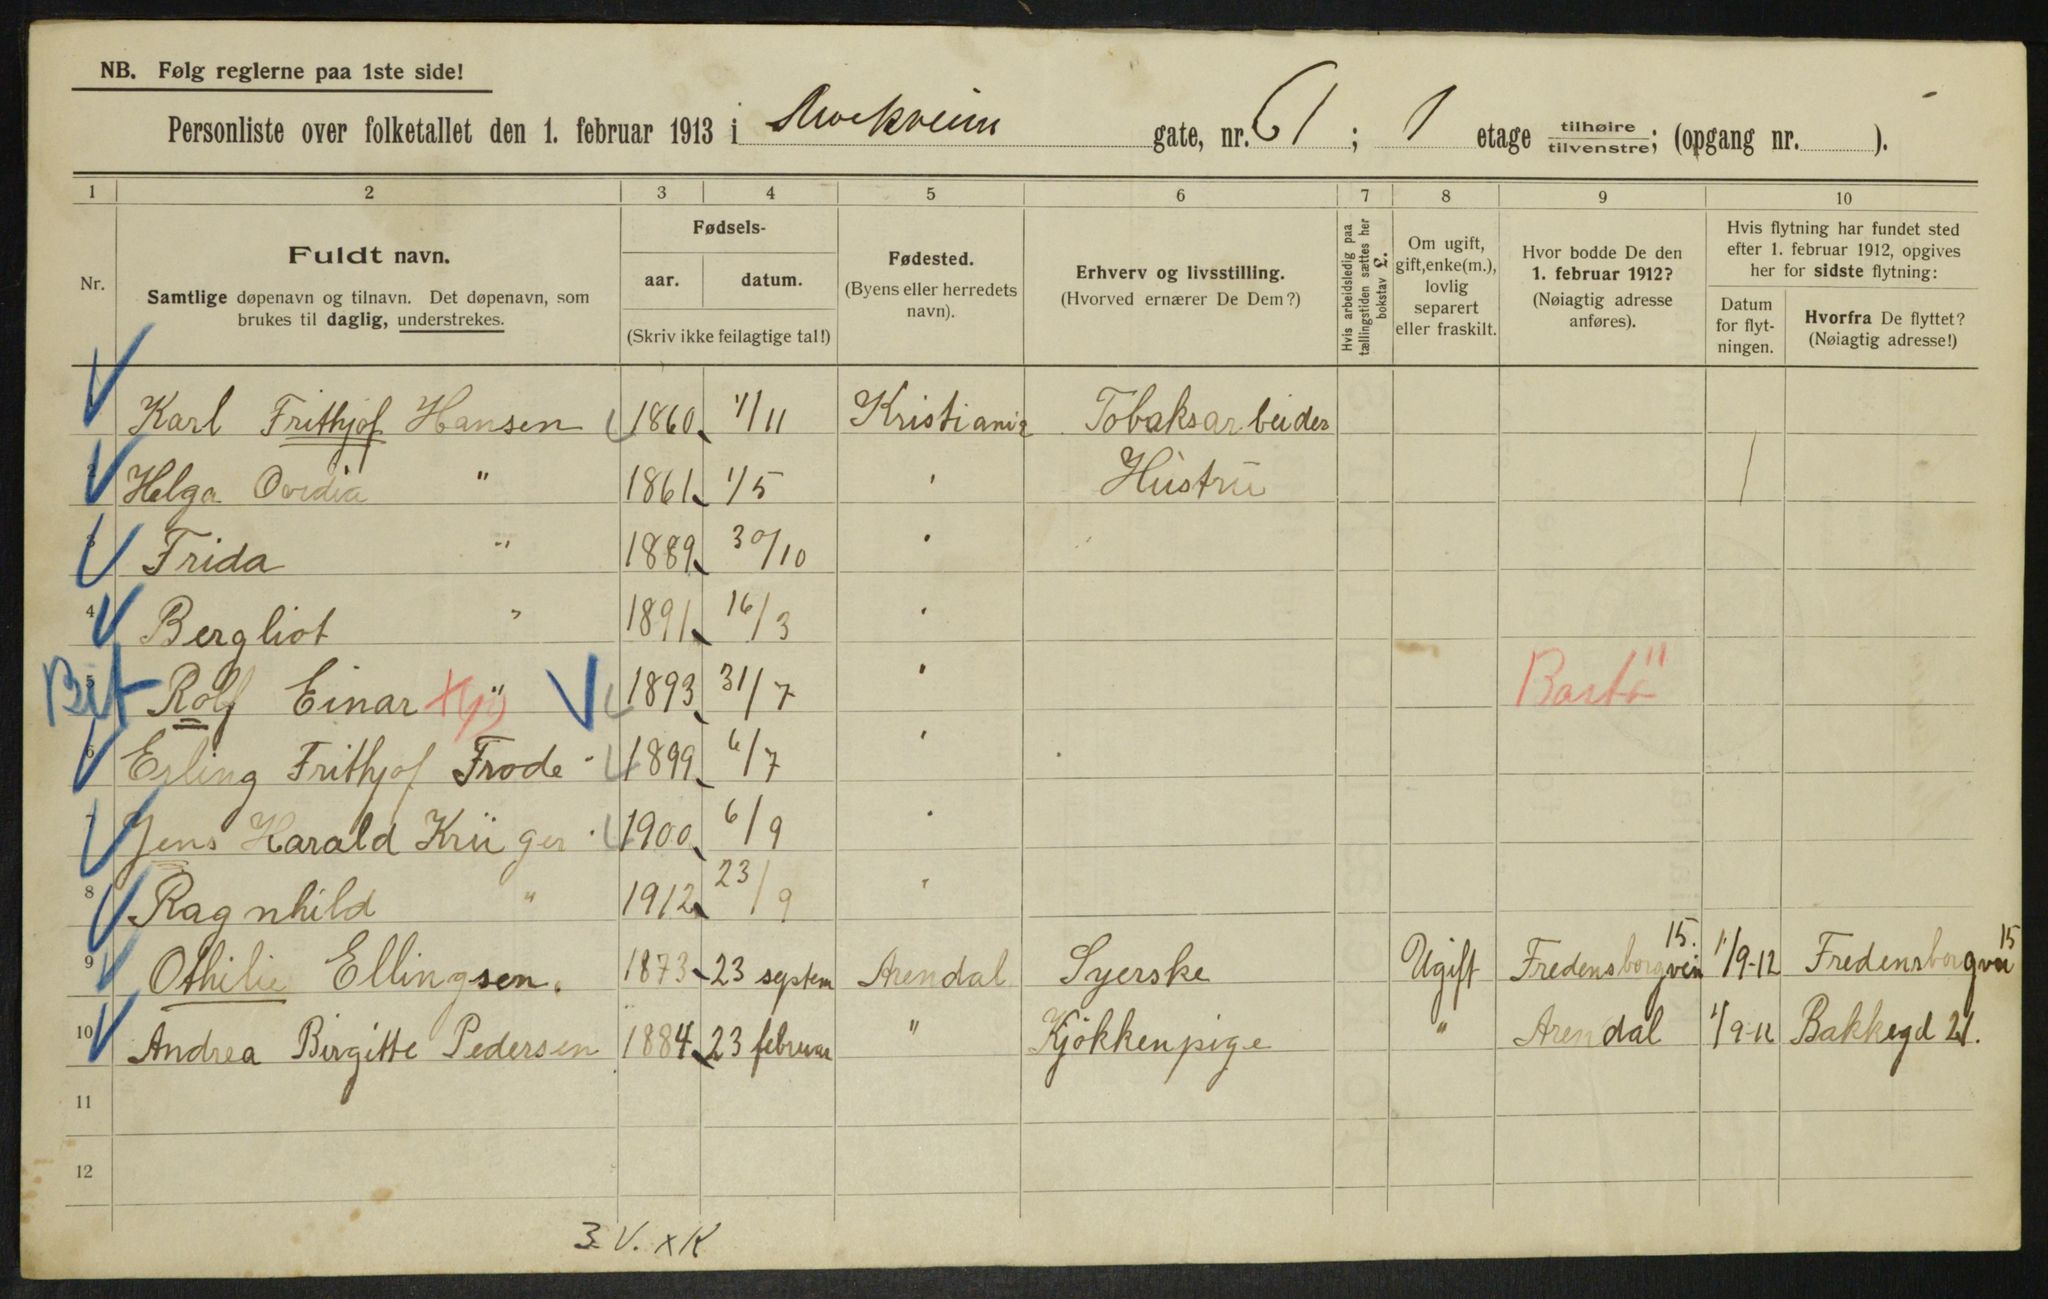 NB. Følg reglerne paa 1ste side!
Personliste over folketallet den 1. februar 1913 i gate, nr. 61 ; 1 etage tilhøire tilvenstre; (opgang nr. ).
1 2 3 4 5 6 7 8 9 10
Nr.
Fuldt navn.
Samtlige døpenavn og tilnavn. Det døpenavn, som
brukes til daglig, understrekes.
Fødsels-
aar. datum.
(Skriv ikke feilagtige tal!)
Fødested.
(Byens eller herredets
navn).
Erhverv og livsstilling.
(Hvorved ernærer De Dem?)
Hvis arbeidsledig paa
tællingstiden sættes her
bokstav L.
Om ugift,
gift, enke(m.),
lovlig
separert
eller fraskilt.
Hvor bodde De den
1. februar 1912?
(Nøiagtig adresse
anføres).
Hvis flytning har fundet sted
efter 1. februar 1912, opgives
her for sidste flytning:
Datum
for flyt-
ningen.
Hvorfra De flyttet?
(Nøiagtig adresse!)
Karl Frithjof Hansen 1860 1/11 Kristiania Tobaksarbeider
2 Helga Ovidia " 1861 1/5 " Hustru
3 Frida " 1889 30/10 "
4 Bergliot " 1891 16/3 "
5 Rolf Einar " 1893 31/7 " Bastö
6 Erling Frithjof Frode " 1899 6/7 "
7 Jens Harald Krüger " 1900 6/9 "
8 Ragnhild " 1912 23/9 "
9 Othilie Ellingsen. 1873 23 septem Arendal Syerske Ugift Fredensborgvein 15. 1/9-12 Fredensborgvei 15
10 Andrea Birgitte Pedersen 1884 23 februar " Kjøkkenpige " Arendal 1/9-12 Bakkegd 21.
11
12
3. V. x K